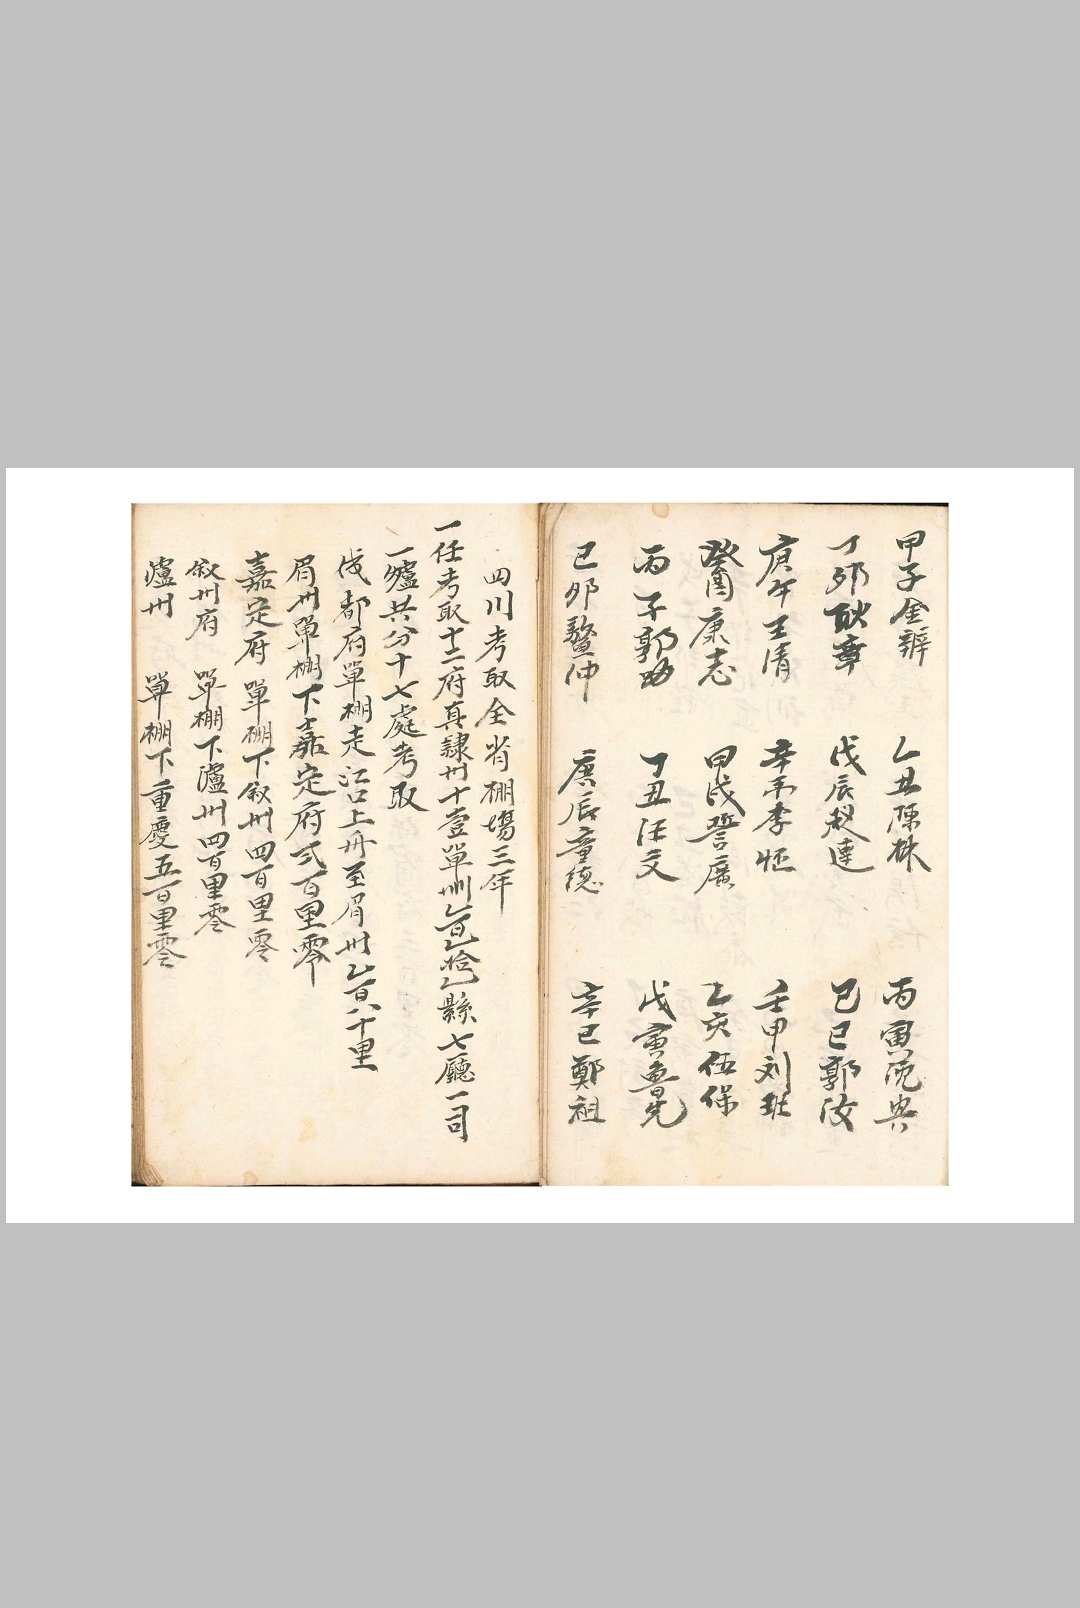 甲子金辦
乙丑陳材
丙寅沈興
丁卯耿章
戊辰趙達
己巳郭汝
庚午王清
辛未李恆
壬申刘旺
癸酉康志
甲戌誓廣
乙亥伍保
丙子郭如
丁丑汪文
戊寅魯先
己卯龔仲
庚辰童德
辛巳鄭祖
四川考取全省棚場三年
一任考取十二府真隸州十壹單州乙百乙拾乙縣七廳一司
一爐共分十七處考取
成都府單棚走江口上舟至眉州乙百八十里
眉州單棚下嘉定府弍百里零
嘉定府單棚下敘州四百里零
敘州府 單棚下瀘州四百里零
瀘州 單棚下重慶五百里零